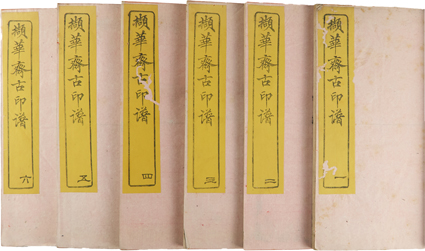 擷華齋古印譜 一
擷華齋古印譜 二
擷華齋古印譜 三
擷華齋古印譜 四
擷華齋古印譜 五
擷華齋古印譜 六